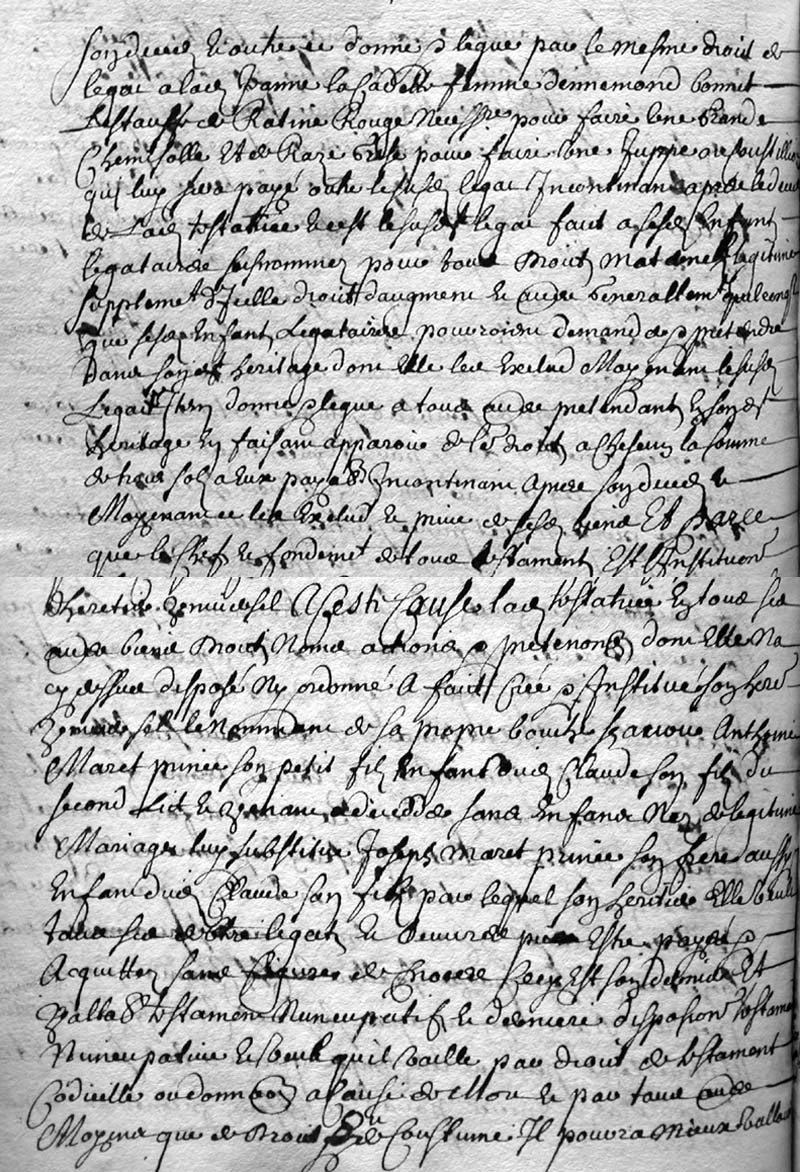 son deced Et outre ce donne & legue par le mesme droit de
legat a lad Janne la Cadette femme d'ennemond bonnet
Lestauffe de Ratine Rouge necessre pour faire une Grande
Chemisolle Et de Raze Grise pour faire une Juppe ou
qui luy sera payé outre le susd legat Incontinant apres le deced
de Lad testatrice Et cest le susd legat faict a sesd Enfants
legataires susnommez pour tous droits maternels legitime
supplement d'Icelle droits daugment Et autres Generallemt quelconq
que sesd Enfants Legataires pouvroient demander & pretendre
Dans sond heritage dont Elle les Exclud Moyenant le susd
Legat Item donne & legue a tous autres pretendants En sond
heritage En faisant apparoir de leurs droits a Chescun la somme
de trois sols a Eux payable Incontinant apres son deced Et
Moyenant ce les Exclud Et prive de sesd biens Et Parce
que le Chef Et fondemt de tous testament Est l'Institution
dheretier Universel A Ceste Cause lad testatrice En tous ses
autres biens droits Noms actions & pretentions dont Elle Na
cy dessus disposé Ny ordonné A faict Créé & Institué son here
Universel le Nommant de sa propre bouche scavoir Anthoine
Maret prince son petit fils Enfant dud Claude son fils du
second Lict Et Venant a deceder sans Enfans Nez de legitime
Mariage luy substitue Joseph Maret prince son frere aussy
Enfant dud Claude son fils par lequel son heritier Elle veult
tous ses legats Et Oeuvres pies Estre payés &
Acquittes sans figure de proces Ceey Est son dernier Et
Vallable testament Nuncupatif Et derniere disposion testame
Nuncupative Et veult quil vaille par droit de testament
Codicille ou donnaon a Cause de Mort Et par tous autres
Moyens que de droit & de Coustume Il pouvra mieux valloir